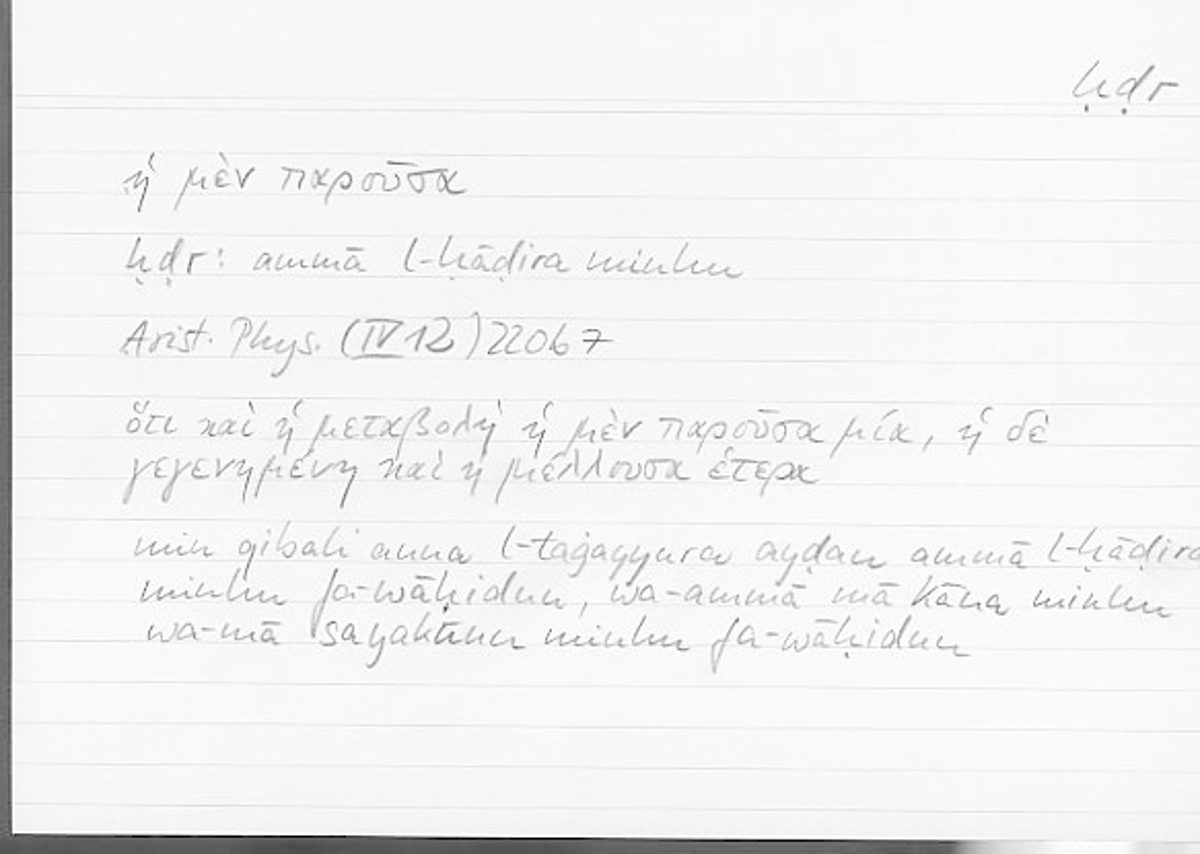 ḥḍr
ἡ μὲν παροῦσα
ḥḍr: ammā l-ḥāḍira minhu
Arist. Phys. (IV 12) 220b7
ὅτι καὶ ἡ μεταβολὴ ἡ μὲν παροῦσα μία, ἡ δὲ
γεγενημένη καὶ ἡ μέλλουσα ἑτέρα
min qibali anna l-taġayyura ayḍan ammā l-ḥāḍira
minhu fa-wāḥidun, wa-ammā mā kāna minhu
wa-mā sayakūnu minhu fa-wāḥidun